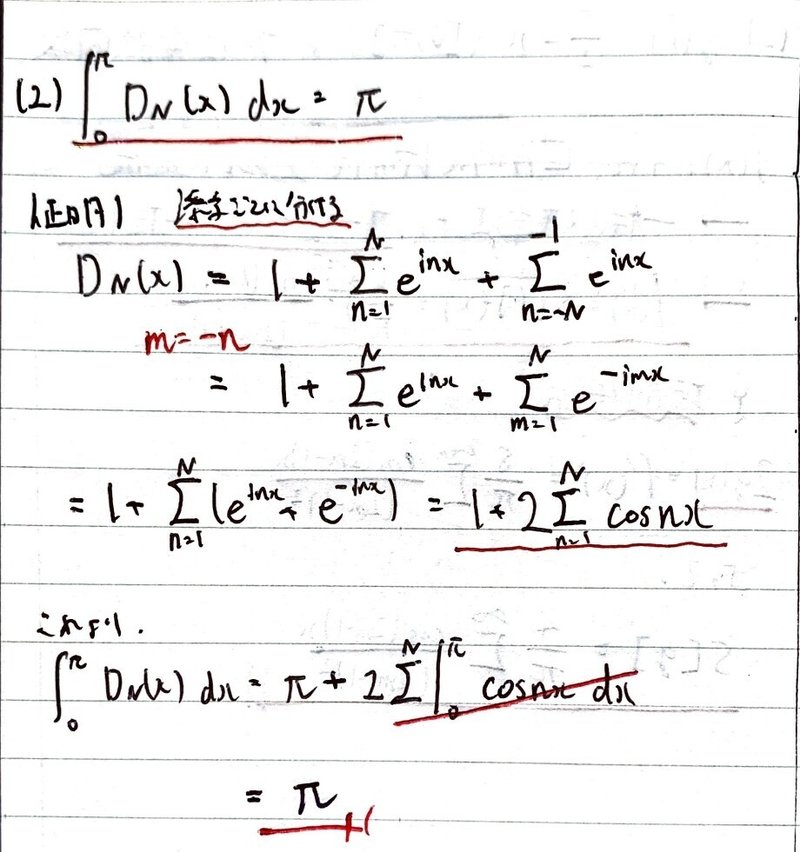 (2) ∫₀^π D_N(x) dx = π
(証明)
D_N(x) = 1 + Σ_{n=1}^{N} e^{inx} + Σ_{n=-N}^{-1} e^{inx}
m = -n
= 1 + Σ_{n=1}^{N} e^{inx} + Σ_{m=1}^{N} e^{-imx}
= 1 + Σ_{n=1}^{N} (e^{inx} + e^{-inx}) = 1 + 2Σ_{n=1}^{N} cosnx
これより.
∫₀^π D_N(x) dx = π + 2Σ^{N} ∫₀^π cosnx dx
= π